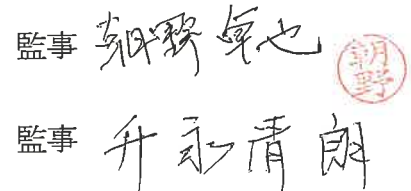 監事 朝野卓也
朝野
監事 升永青朗